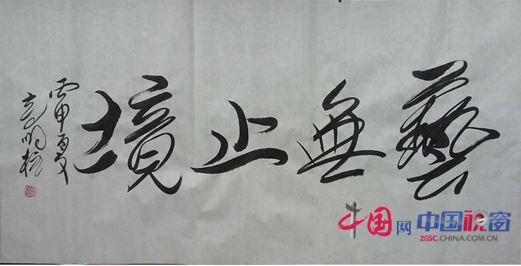 藝無止境
丙申夏
中国网 中国视窗
ZGSC.CHINA.COM.CN